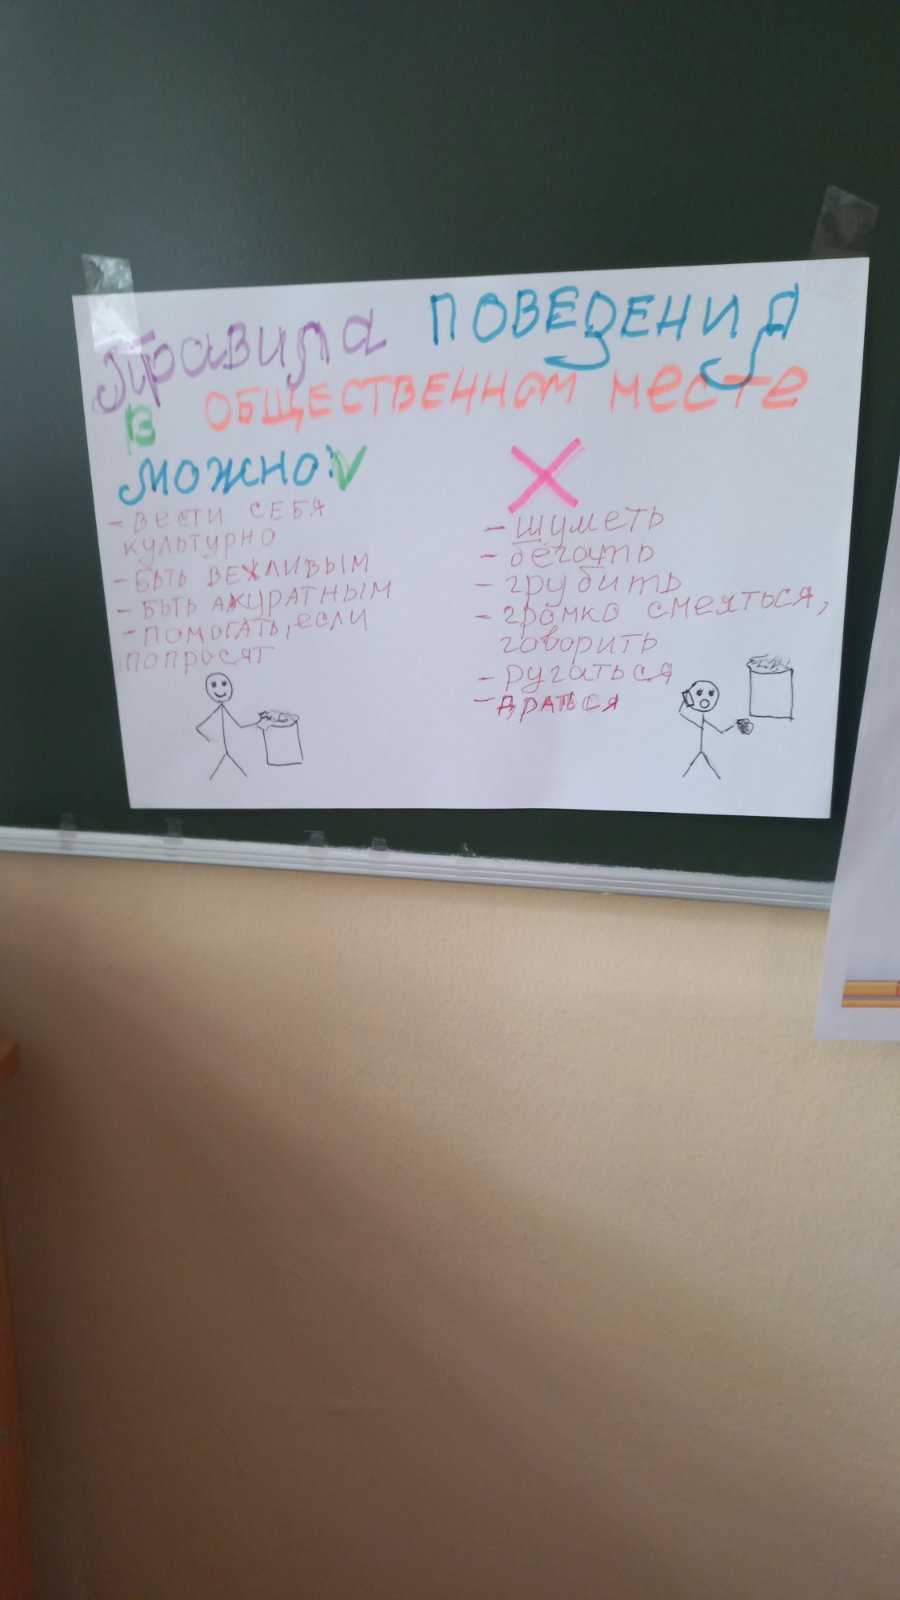 Правила ПОВЕДЕНИЯ
В ОБЩЕСТВЕННОМ месте
МОЖНО:V
- ВЕСТИ СЕБЯ
КУЛЬТУРНО
- БЫТЬ ВЕЖЛИВЫМ
- БЫТЬ АКУРАТНЫМ
- ПОМОГАТЬ, ЕСЛИ
ПОПРОСЯТ
X
- шуметь
- бегать
- грубить
- громко смеяться,
говорить
- ругаться
- драться